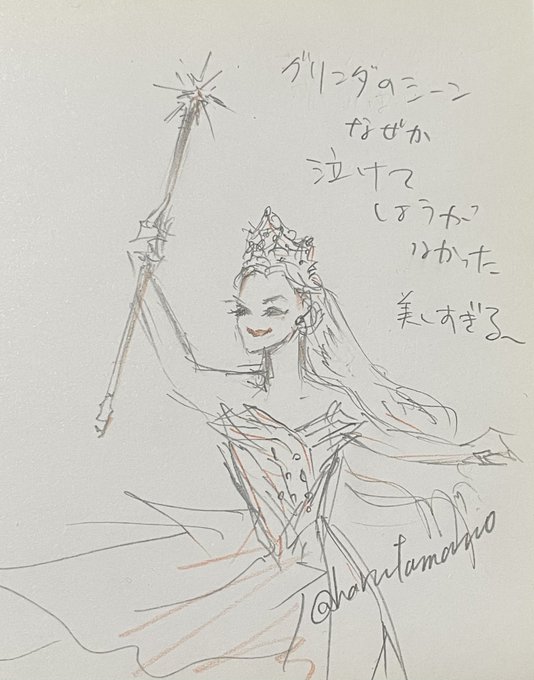 グリンダのシーン
なぜか
泣けて
しょうが
なかった
美しすぎる〜
@harutamanio